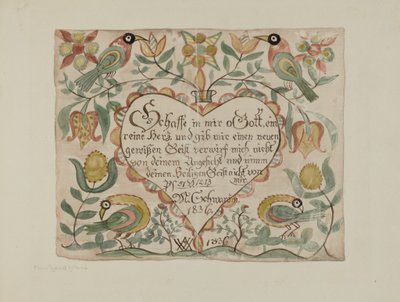 Schaffe in mir o Gott ein
reine Herz und gib mir einen neuen
gewißen Geist verwirf mich nicht
von deinem Angesicht und nimm
deinen Heiligen Geist nicht von
mir
1836.
1836